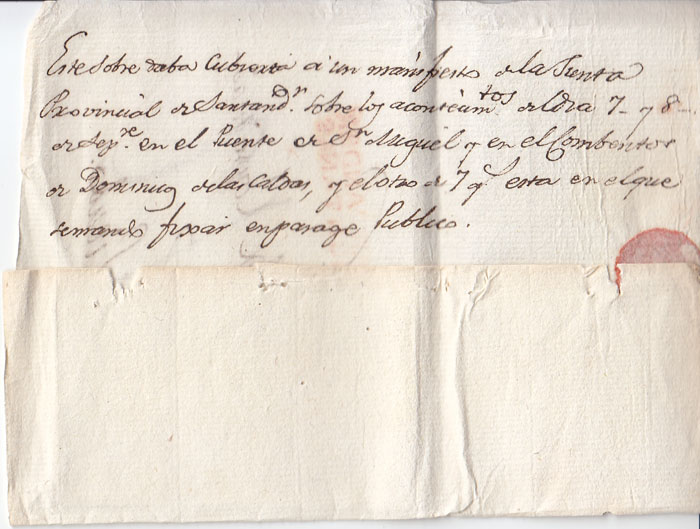 Este Sobre daba Cubierta â un manifiesto de la Junta
Provincial de Santand.r Sobre los acontecim.tos del dia 7 y 8
de Sep.re en el Puente de S.n Miguel y en el Combento
de Dominicos de las Caldas, y el otro de 7 q.e esta en el que
se mando fixar en parage Publico.